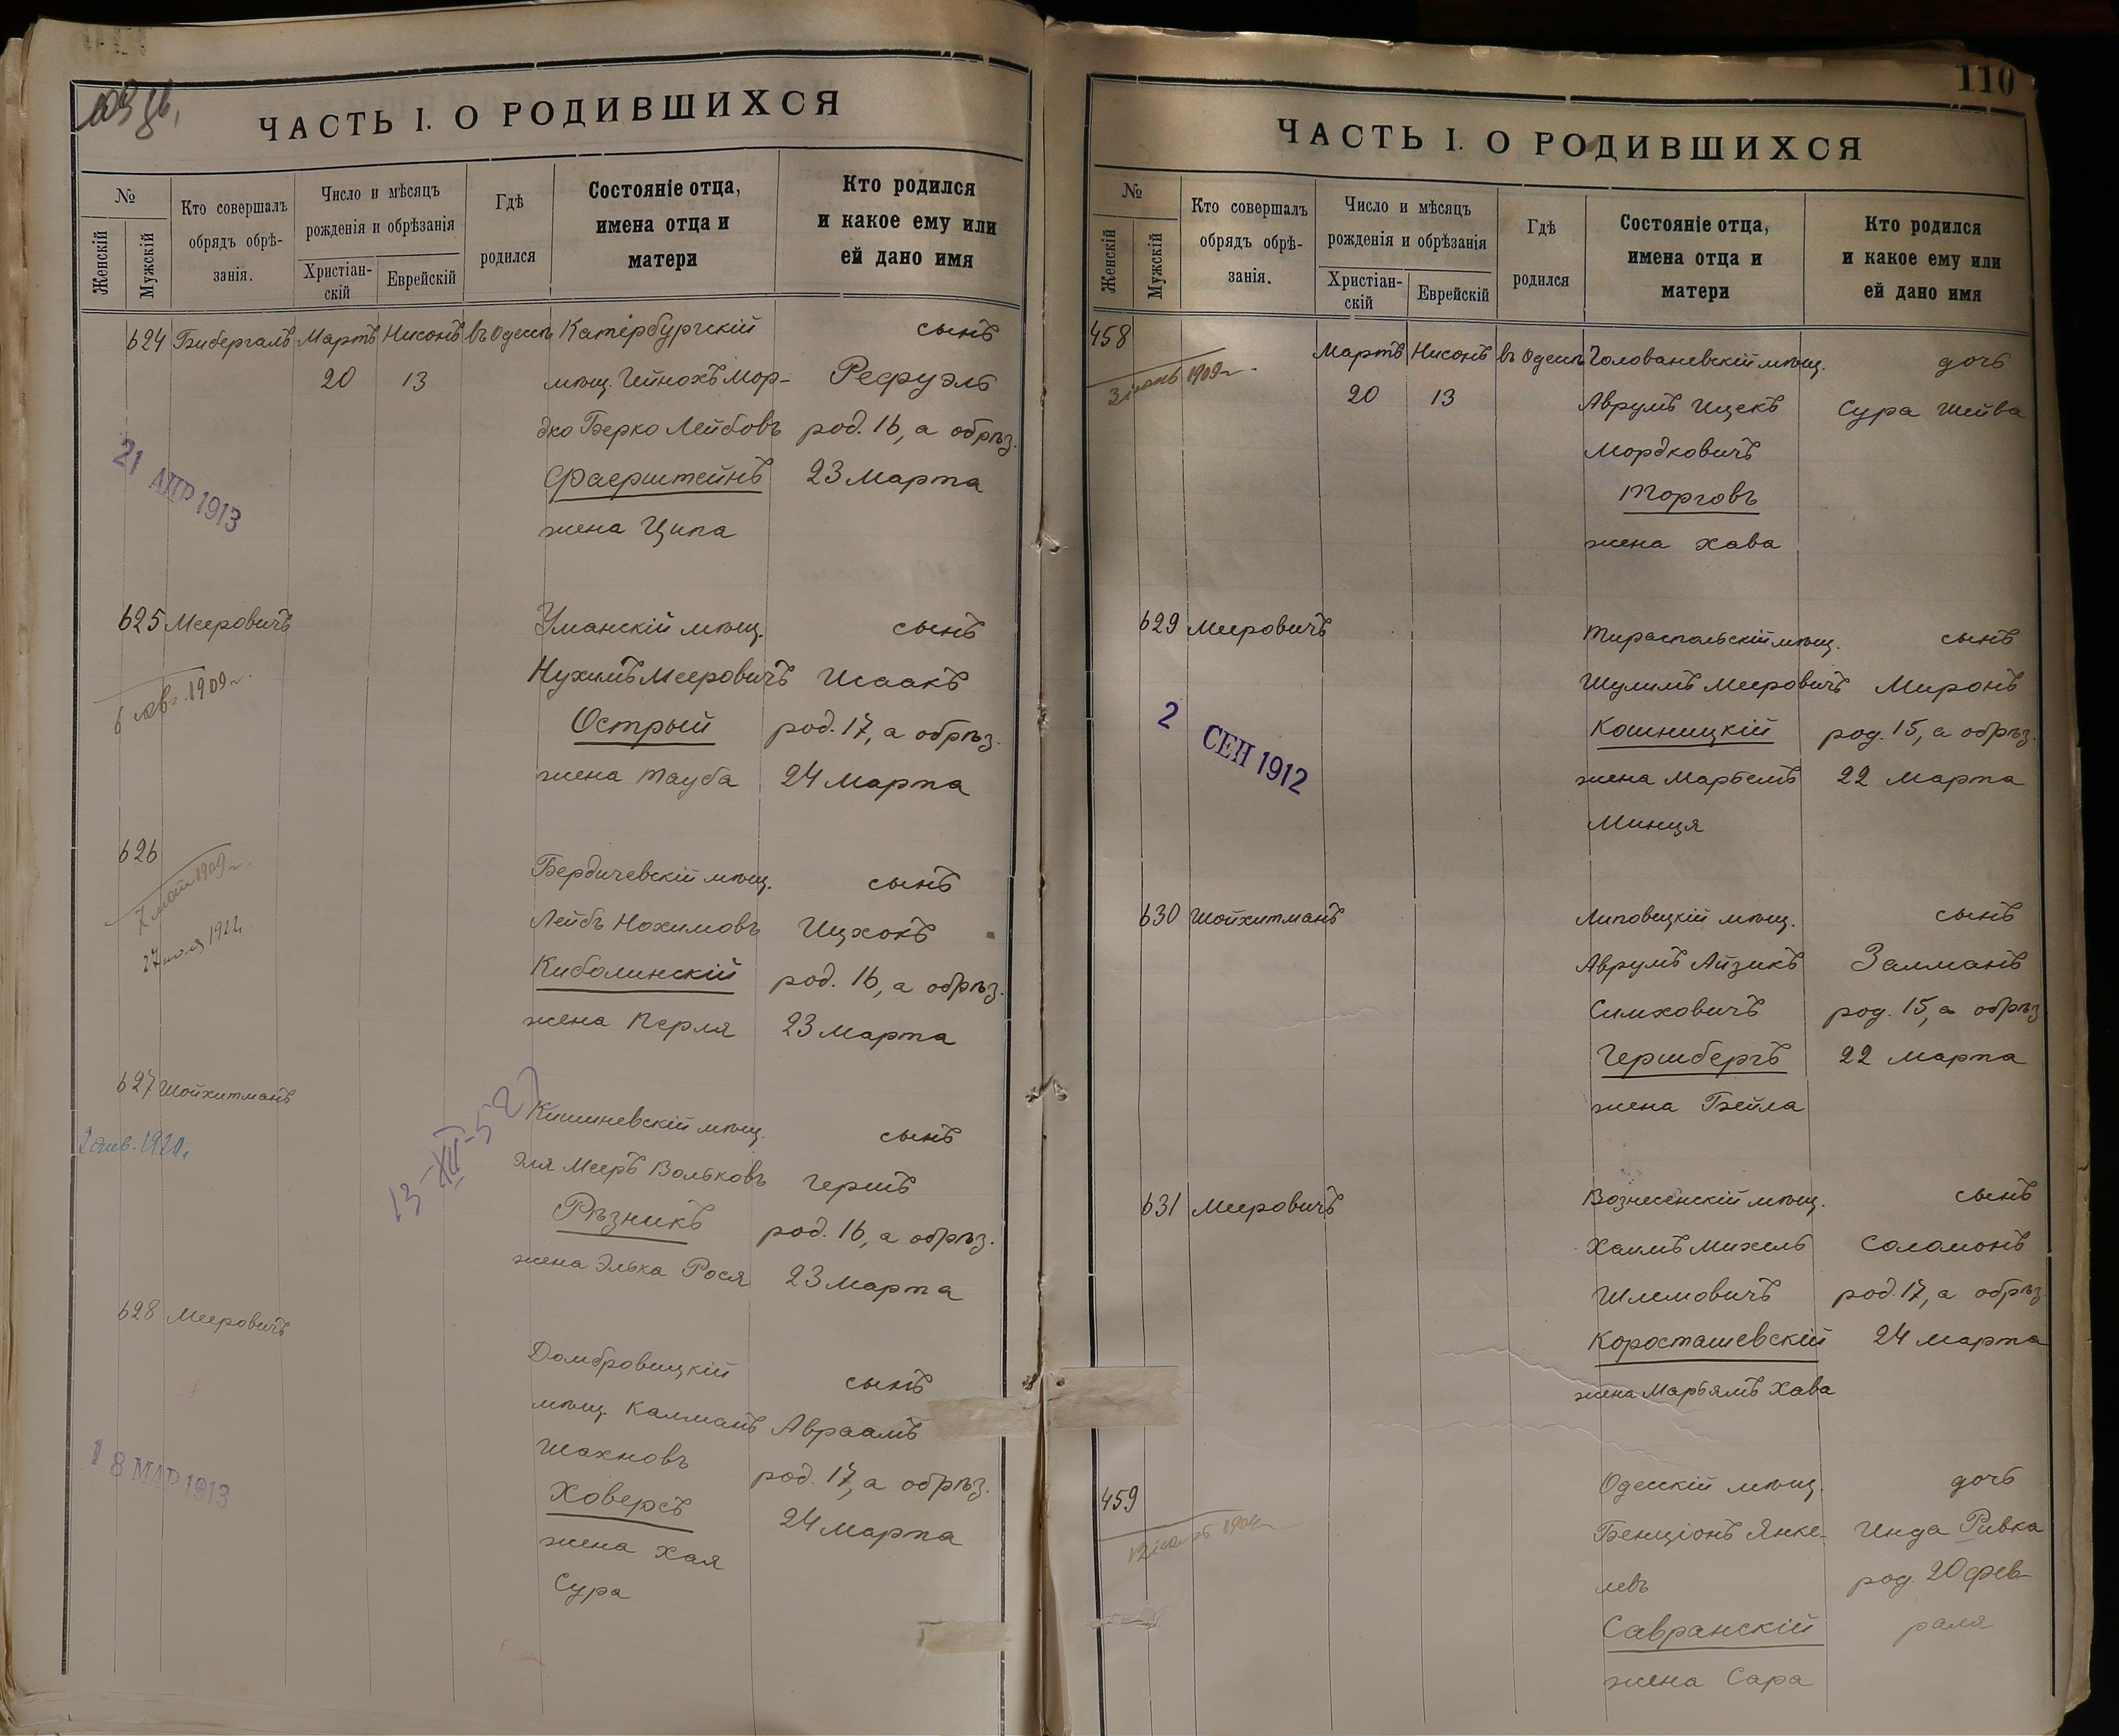 ЧАСТЬ I. О РОДИВШИХСЯ
№
Женскій
Мужскій
Кто совершалъ
обрядъ обрѣ-
занія.
Число и мѣсяцъ
рожденія и обрѣзанія
Христіан-
скій
Еврейскій
Гдѣ
родился
Состояніе отца,
имена отца и
матери
Кто родился
и какое ему или
ей дано имя
624 Бибергалъ Мартъ Нисонъ въ Одессѣ Катербургскій сынъ
20 13 мѣщ. Гейнохъ Мор- Рефуэль
дко Берко Лейбовъ род. 16, а обрѣз.
21 АПР 1913
Фаерштейнъ 23 Марта
жена Ципа
625 Мееровичъ Уманскій мѣщ. сынъ
6 авг. 1909 г.
Нухимъ Мееровичъ Исаакъ
Острый род. 17, а обрѣз.
жена Тауба 24 Марта
626 Бердичевскій мѣщ. сынъ
7 мая 1909 г.
27 1922
Лейбъ Нохимовъ Ицхокъ
Киболинскій род. 16, а обрѣз.
жена Перля 23 Марта
627 Шойхитманъ Кишиневскій мѣщ. сынъ
2 янв. 1920 г.
13-XII-52
Эля Мееръ Вольковъ Гершъ
Рѣзникъ род. 16, а обрѣз.
жена Элька Рося 23 Марта
628 Мееровичъ Домбровицкій сынъ
мѣщ. Калманъ Авраамъ
Шахновъ род. 17, а обрѣз.
18 МАР 1913
Ховерсъ 24 Марта
жена Хая
Сура
110
ЧАСТЬ I. О РОДИВШИХСЯ
№
Женскій
Мужскій
Кто совершалъ
обрядъ обрѣ-
занія.
Число и мѣсяцъ
рожденія и обрѣзанія
Христіан-
скій
Еврейскій
Гдѣ
родился
Состояніе отца,
имена отца и
матери
Кто родился
и какое ему или
ей дано имя
458 Мартъ Нисонъ въ Одессѣ Голованевскій мѣщ. дочь
1909 г.
20 13 Аврумъ Ицекъ Сура Шейва
Мордковичъ
Торговъ
жена Хава
629 Мееровичъ Тираспольскій мѣщ. сынъ
Шулимъ Мееровичъ Миронъ
2 СЕН 1912
Кошницкій род. 15, а обрѣз.
жена Марьемъ 22 Марта
Минця
630 Шойхитманъ Липовецкій мѣщ. сынъ
Аврумъ Айзикъ Залманъ
Симховичъ род. 15, а обрѣз
Гершбергъ 22 Марта
жена Бейла
631 Мееровичъ Вознесенскій мѣщ. сынъ
Хаимъ Михель Соломонъ
Шлемовичъ род. 17, а обрѣз
Коросташевскій 24 Марта
жена Марьямъ Хава
459 Одесскій мѣщ. дочь
Бенціонъ Янке- Инда Ривка
левъ род. 20 фев-
Савранскій раля
жена Сара